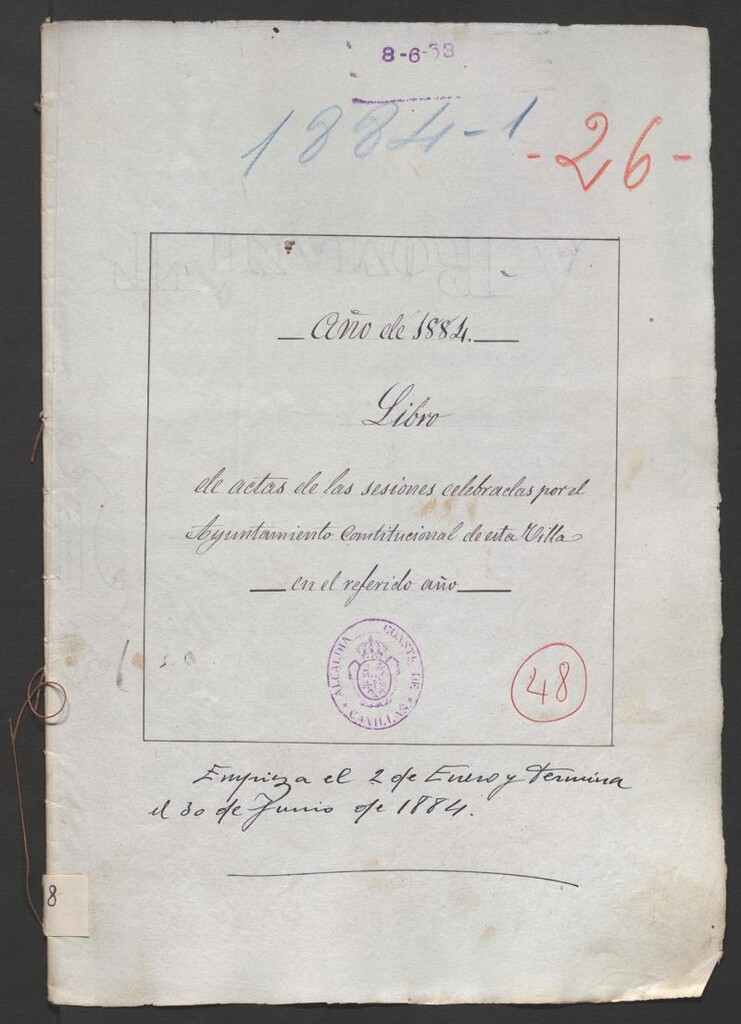 8-6-
1884-1
-26-
Año de 1884.
Libro
de actas de las sesiones celebradas por el
Ayuntamiento Constitucional de esta Villa
en el referido año
ALCALDIA CONSTL. DE
CANILLAS
48
Empieza el 2 de Enero y termina
el 30 de Junio de 1884.
8